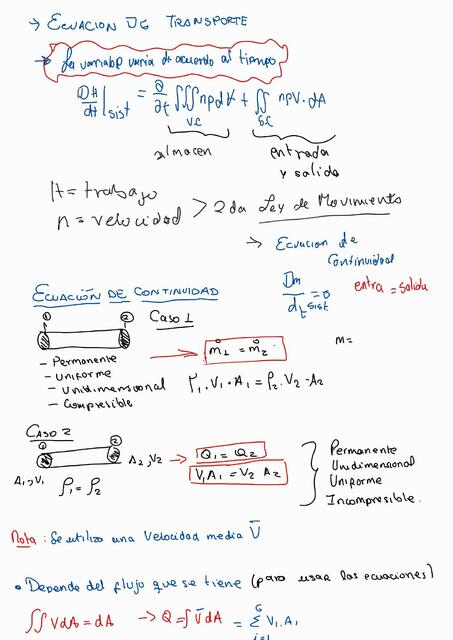 → ECUACION DE TRANSPORTE
→ La variable varia de acuerdo al tiempo
DH/dt|sist = ∂/∂t ∭ nρdV + ∬ nρV·dA
V.C S.C
almacen entrada y salida
H = trabajo
n = velocidad > 2da Ley de Movimiento
→ Ecuacion de Continuidad
Dm/dt sist = 0 entra = salida
ECUACIÓN DE CONTINUIDAD
① ② Caso 1
- Permanente
- Uniforme
- Unidimensional
- Compresible
→ ṁ1 = ṁ2 m=
ρ1·V1·A1 = ρ2·V2·A2
CASO 2
① ②
A1,V1 A2,V2
ρ1 = ρ2
→ Q1 = Q2
V1A1 = V2 A2
Permanente
Unidimensional
Uniforme
Incompresible.
Nota: Se utiliza una Velocidad media V̄
• Depende del flujo que se tiene (para usar las ecuaciones)
∬ VdA = dA → Q = ∫ V̄dA = Σ V1.A1